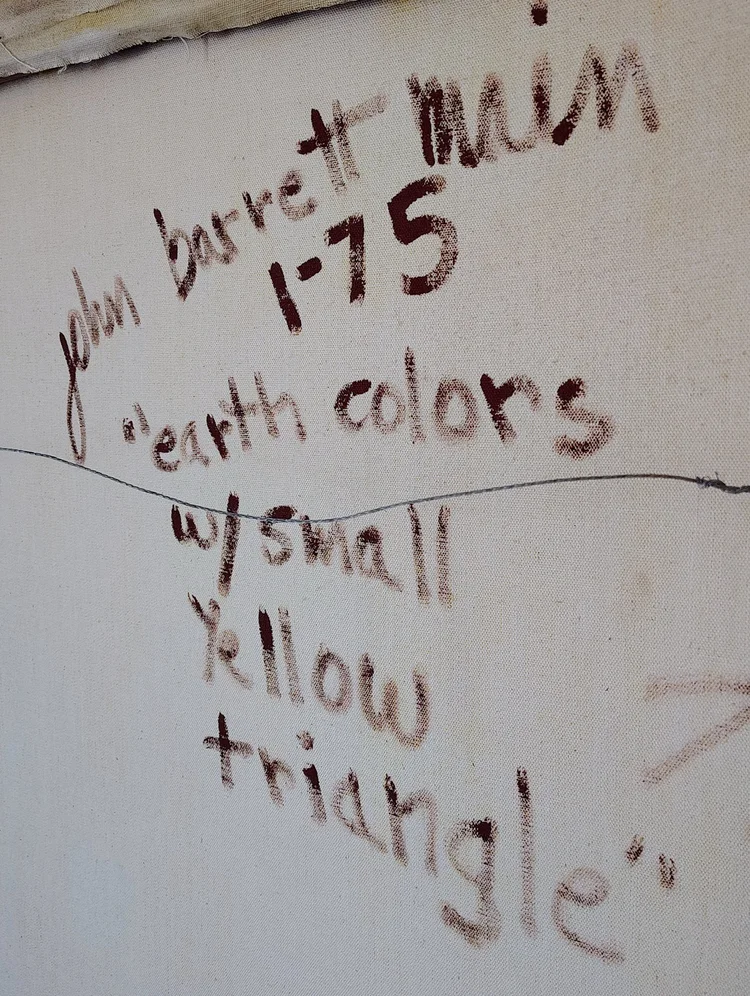 john barrett min
1-75
"earth colors
w/small
Yellow
triangle"